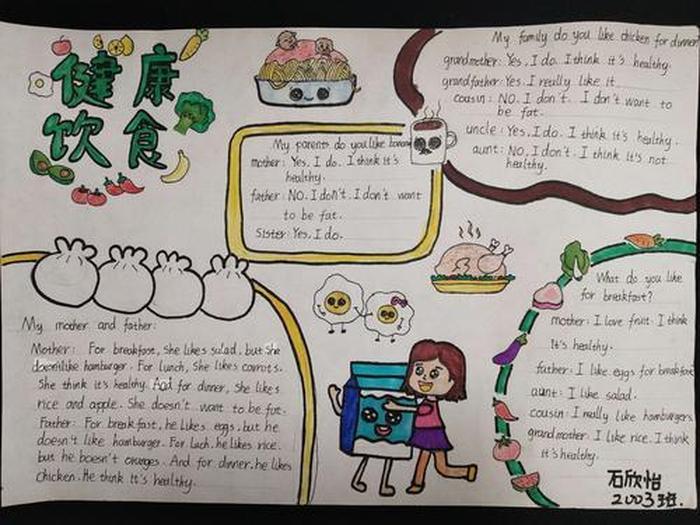 健康
饮食
My parents do you like banana
mother: Yes, I do. I think it's
healthy.
father: NO. I don't. I don't want
to be fat.
Sister: Yes, I do.
My family do you like chicken for dinner
grandmother: Yes, I do. I think it's healthy.
grandfather: Yes, I really like it.
cousin: NO. I don't. I don't want to
be fat.
uncle: Yes, I do. I think it's healthy.
aunt: No, I don't. I think it's not
healthy.
My mother and father:
Mother: For breakfast, she likes salad, but she
doesn'tlike hamburger. For lunch, she likes carrots.
She think it's healthy. And for dinner, she likes
rice and apple. She doesn't want to be fat.
Father: For breakfast, he likes eggs, but he
doesn't like hamburger. For luch, he likes rice.
but he doesn't oranges. And for dinner, he likes
chicken. He think it's healthy.
What do you like
for breakfast?
mother: I love fruit. I think
It's healthy.
father: I like eggs for breakfast
aunt: I like salad.
cousin: I really like hamburgers.
grandmother: I like rice. I think
it's healthy.
石欣怡
2003班.